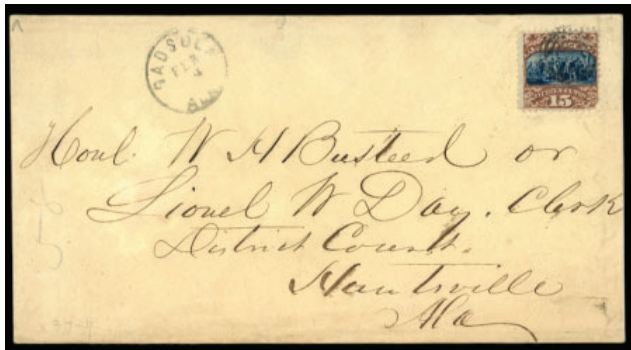 GADSDEN
FEB
4
ALA
15
Honl. W H Busteed or
Lionel W Day. Clerk
District Court.
Huntsville
Ala